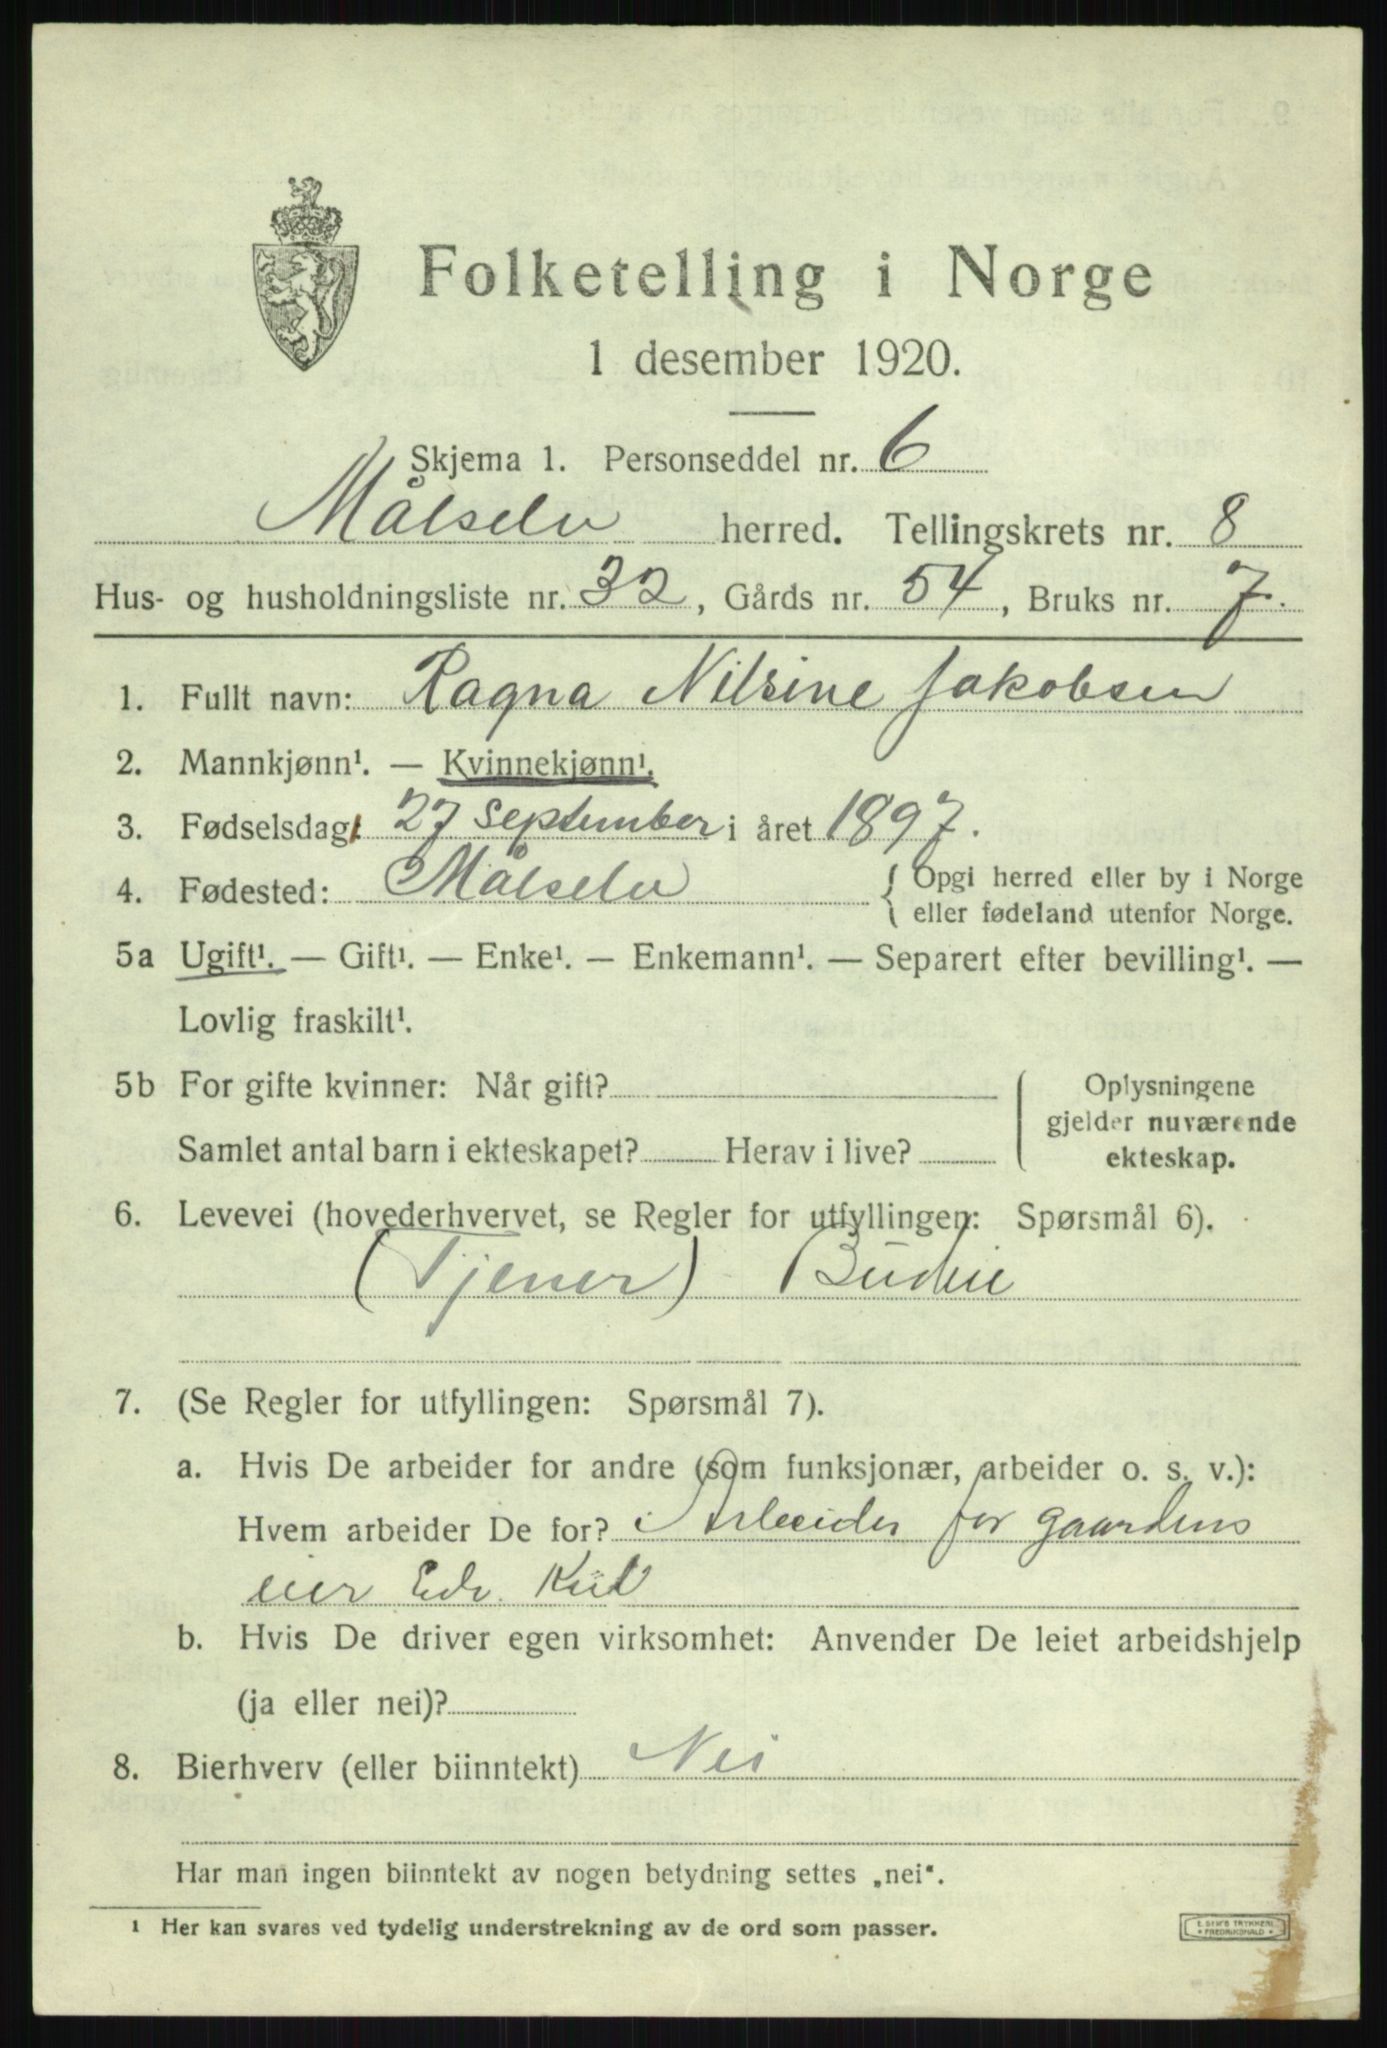 Folketelling i Norge
1 desember 1920.
Skjema 1. Personseddel nr. 6
Målselv herred. Tellingskrets nr. 8
Hus- og husholdningsliste nr. 32, Gårds nr. 54, Bruks nr. 7.
1. Fullt navn: Ragna Nilsine Jakobsen
2. Mannkjønn¹. — Kvinnekjønn¹.
3. Fødselsdag: 27 september i året 1897.
4. Fødested: Målselv { Opgi herred eller by i Norge
eller fødeland utenfor Norge.
5a Ugift¹. — Gift¹. — Enke¹. — Enkemann¹. — Separert efter bevilling¹. —
Lovlig fraskilt¹.
5b For gifte kvinner: Når gift? Oplysningene
gjelder nuværende
Samlet antal barn i ekteskapet? Herav i live? ekteskap.
6. Levevei (hovederhvervet, se Regler for utfyllingen: Spørsmål 6).
(Tjener) Budeie
7. (Se Regler for utfyllingen: Spørsmål 7).
a. Hvis De arbeider for andre (som funksjonær, arbeider o. s. v.):
Hvem arbeider De for? Arbeider for gaardens
eier Edv.
b. Hvis De driver egen virksomhet: Anvender De leiet arbeidshjelp
(ja eller nei)?
8. Bierhverv (eller biinntekt) Nei
Har man ingen biinntekt av nogen betydning settes „nei".
1 Her kan svares ved tydelig understrekning av de ord som passer.
E. SEM'S TRYKKERI
FREDRIKSHALD